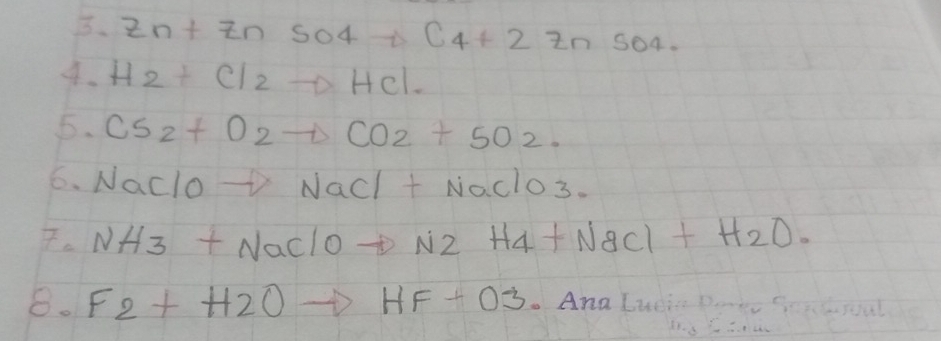 3. Zn + Zn SO4 → C4 + 2 Zn SO4.
4. H2 + Cl2 → HCl.
5. CS2 + O2 → CO2 + SO2.
6. NaClO → NaCl + NaClO3.
7. NH3 + NaClO → N2 H4 + NaCl + H2O.
8. F2 + H2O → HF + O3. Ana